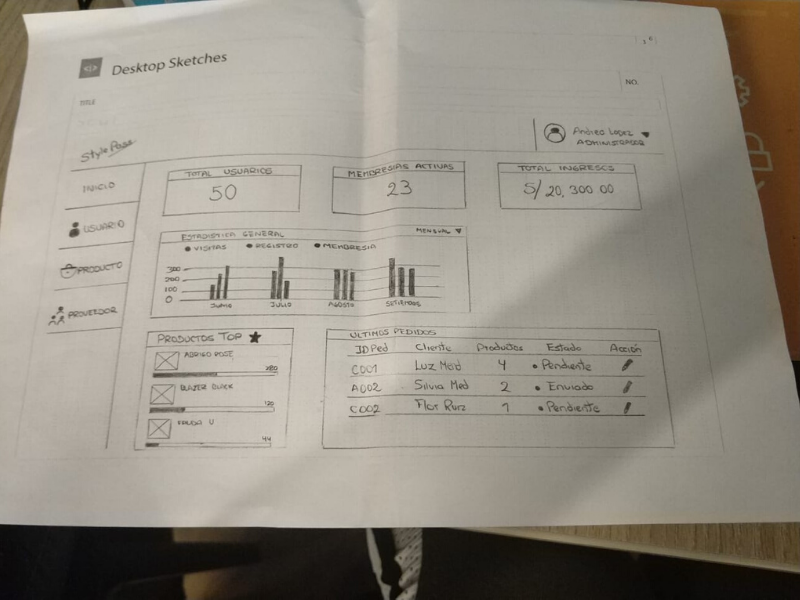 Desktop Sketches
NO.
TITLE
Style Pass
Andrea Lopez
ADMINISTRADOR
INICIO
USUARIO
PRODUCTO
PROVEEDOR
TOTAL USUARIOS
50
MEMBRESIAS ACTIVAS
23
TOTAL INGRESOS
S/ 20, 300 00
ESTADISTICA GENERAL
MENSUAL
VISITAS
REGISTRO
MEMBRESIA
300
200
100
0
JUNIO
JULIO
AGOSTO
PRODUCTOS TOP
ABRIGO ROSE
BLAZER
FALDA U
ULTIMOS PEDIDOS
IDPed Cliente Productos Estado Acción
C001 Luz Med 4 Pendiente
A002 Silvia Med 2 Enviado
C002 Flor Ruiz 1 Pendiente